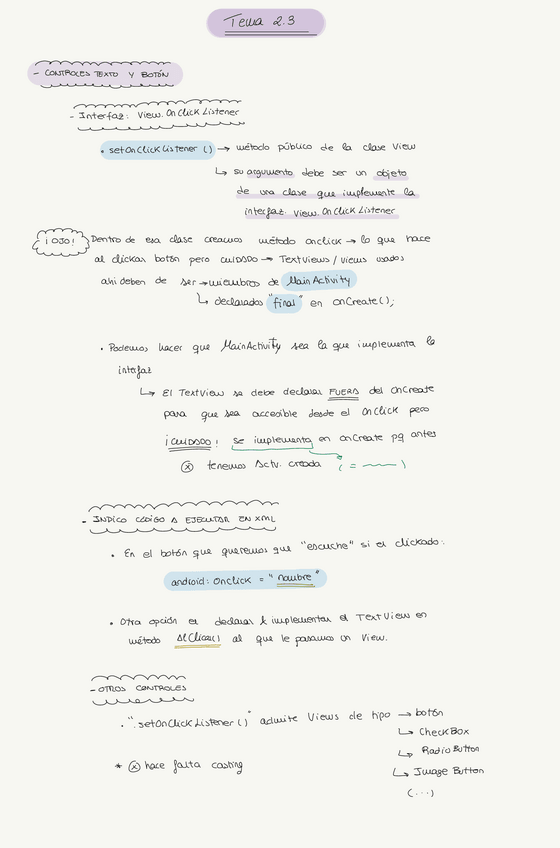 Tema 2.3
- CONTROLES TEXTO Y BOTÓN
- Interfaz: View.OnClickListener
• setOnClickListener () → método público de la clase View
↳ su argumento debe ser un objeto
de una clase que implemente la
interfaz View.OnClickListener
¡OJO! Dentro de esa clase creamos método onclick → lo que hace
al clickar botón pero CUIDADO → TextViews / views usados
ahi deben de ser → miembros de MainActivity
↳ declarados "final" en onCreate();
• Podemos hacer que MainActivity sea la que implementa la
intefaz
↳ El TextView se debe declarar FUERA del OnCreate
para que sea accesible desde el OnClick pero
¡CUIDADO! se implementa en onCreate pq antes
ⓧ tenemos Actv. creada ( = ——— )
- INDICO CÓDIGO A EJECUTAR EN XML
• En el botón que queremos que "escuche" si es clickado:
android: OnClick = "nombre"
• Otra opción es declarar & implementar el TextView en
método AlClicar() al que le pasamos un View.
- OTROS CONTROLES
• ".setOnClickListener ()" admite Views de tipo → botón
↳ CheckBox
↳ Radio Button
↳ Image Button
(...)
* ⓧ hace falta casting